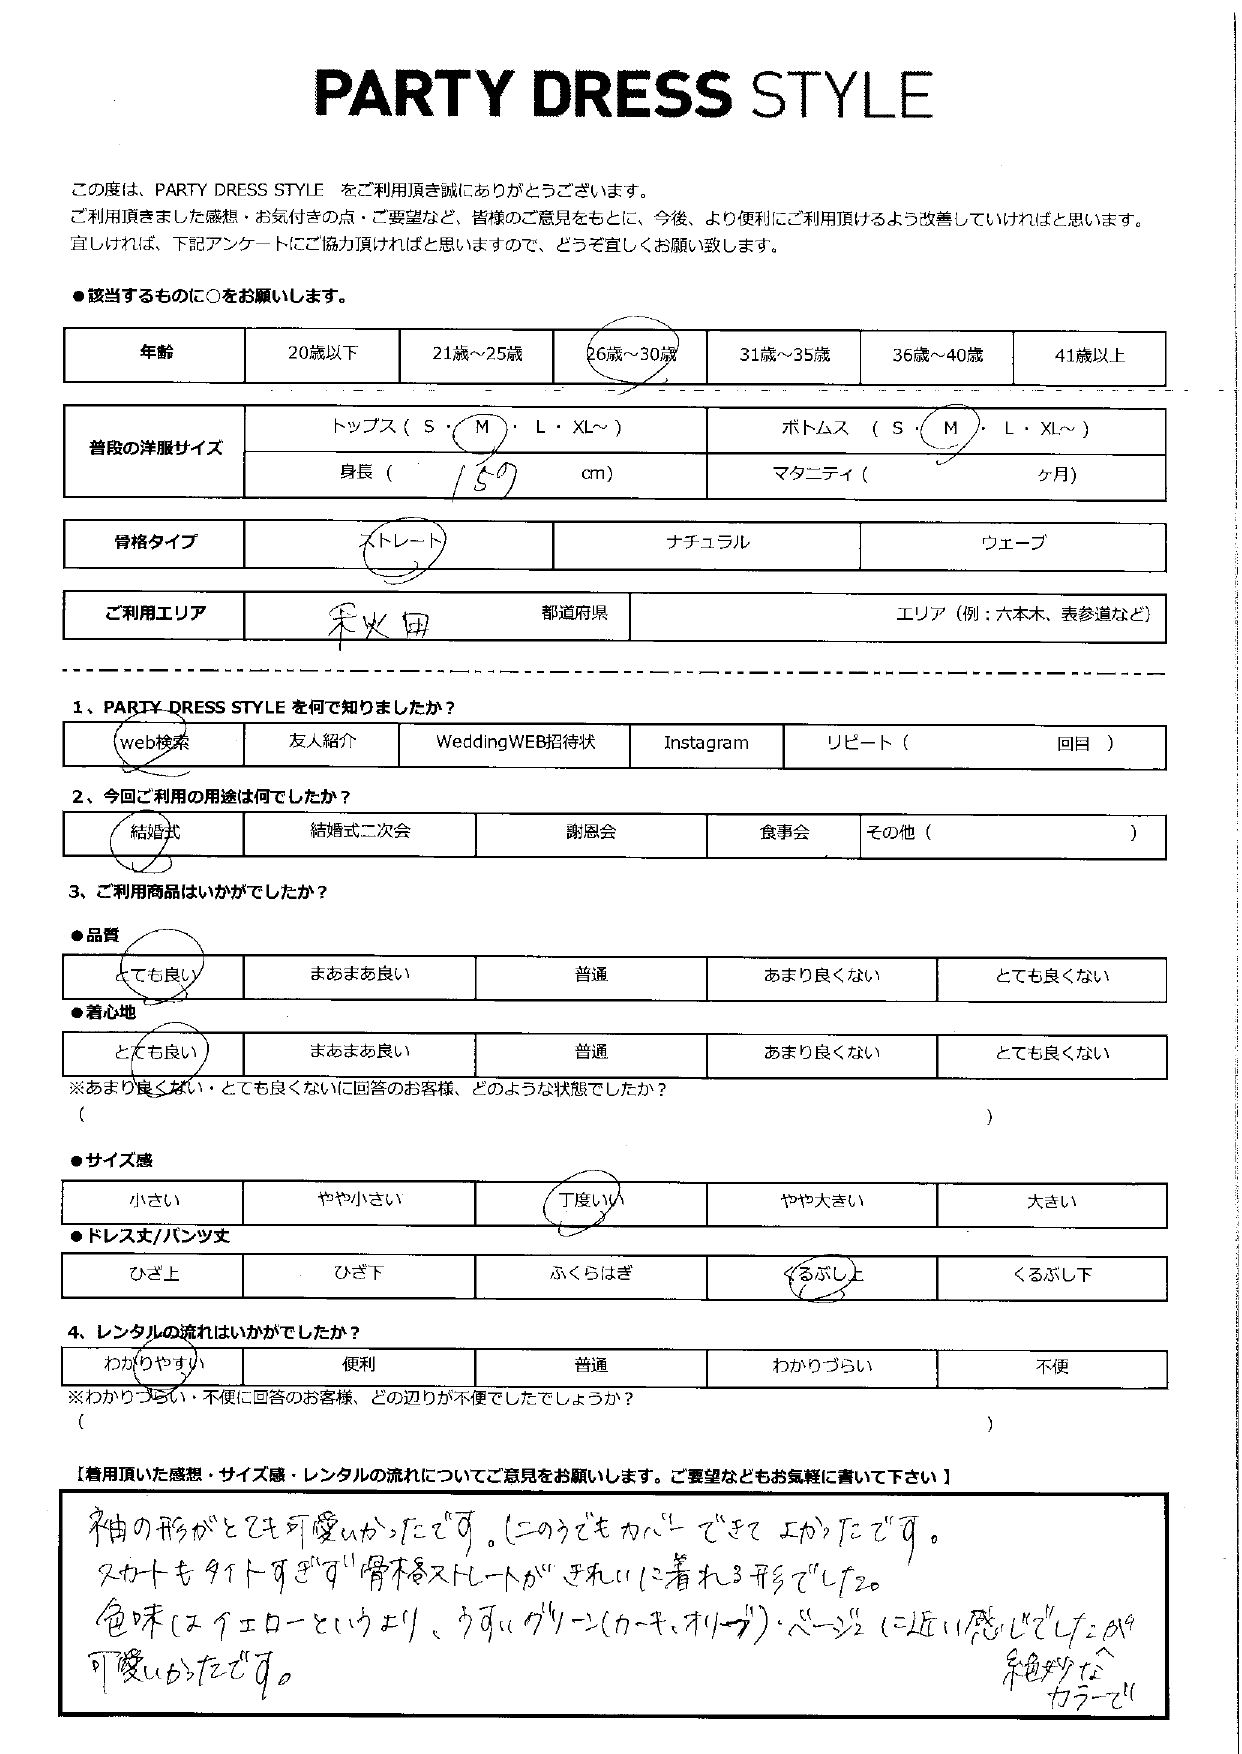 PARTY DRESS STYLE
この度は、PARTY DRESS STYLE をご利用頂き誠にありがとうございます。
ご利用頂きました感想・お気付きの点・ご要望など、皆様のご意見をもとに、今後、より便利にご利用頂けるよう改善していければと思います。
宜しければ、下記アンケートにご協力頂ければと思いますので、どうぞ宜しくお願い致します。
●該当するものに○をお願いします。
年齢 20歳以下 21歳～25歳 26歳～30歳 31歳～35歳 36歳～40歳 41歳以上
普段の洋服サイズ トップス ( S ・ M ・ L ・ XL～ ) ボトムス ( S ・ M ・ L ・ XL～ )
身長 ( 157 cm) マタニティ ( ヶ月)
骨格タイプ ストレート ナチュラル ウェーブ
ご利用エリア 秋田 都道府県 エリア（例：六本木、表参道など）
1、PARTY DRESS STYLE を何で知りましたか？
web検索 友人紹介 WeddingWEB招待状 Instagram リピート ( 回目 )
2、今回ご利用の用途は何でしたか？
結婚式 結婚式二次会 謝恩会 食事会 その他 ( )
3、ご利用商品はいかがでしたか？
●品質
とても良い まあまあ良い 普通 あまり良くない とても良くない
●着心地
とても良い まあまあ良い 普通 あまり良くない とても良くない
※あまり良くない・とても良くないに回答のお客様、どのような状態でしたか？
( )
●サイズ感
小さい やや小さい 丁度いい やや大きい 大きい
●ドレス丈/パンツ丈
ひざ上 ひざ下 ふくらはぎ くるぶし上 くるぶし下
4、レンタルの流れはいかがでしたか？
わかりやすい 便利 普通 わかりづらい 不便
※わかりづらい・不便に回答のお客様、どの辺りが不便でしたでしょうか？
( )
【着用頂いた感想・サイズ感・レンタルの流れについてご意見をお願いします。ご要望などもお気軽に書いて下さい 】
袖の形がとても可愛いかったです。にのうでもカバーできてよかったです。
スカートもタイトすぎず骨格ストレートがきれいに着れる形でした。
色味はイエローというより、うすいグリーン(カーキ、オリーブ)・ベージュに近い感じでしたが
絶妙な
カラーで
可愛いかったです。